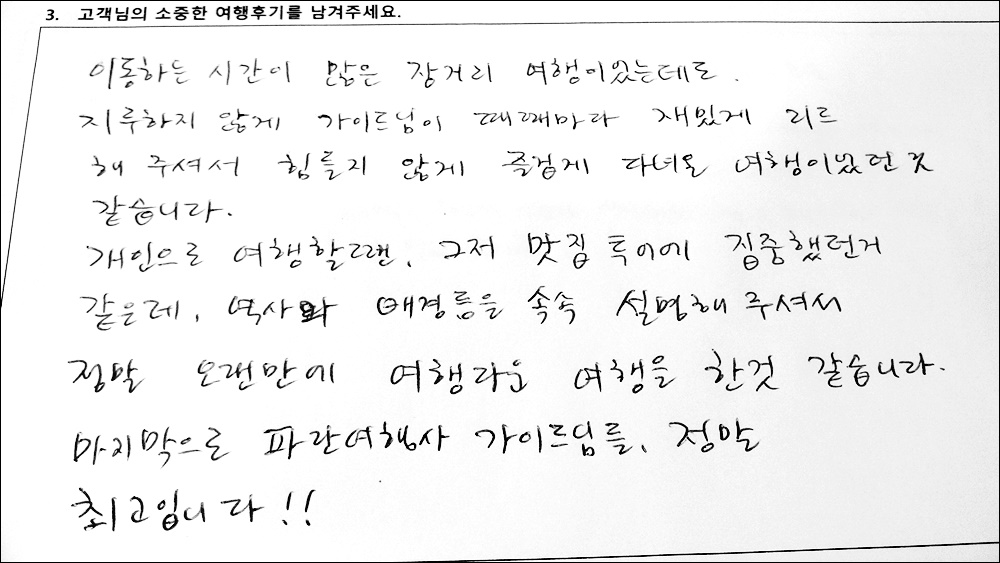 3. 고객님의 소중한 여행후기를 남겨주세요.
이동하는 시간이 많은 장거리 여행이었는데도.
지루하지 않게 가이드님이 때때마다 재밌게 리드
해 주셔서 힘들지 않게 즐겁게 다녀온 여행이었던 것
같습니다.
개인으로 여행할땐, 그저 맛집 투어에 집중했던거
같은데, 역사와 배경들을 속속 설명해 주셔서
정말 오랜만에 여행다운 여행을 한것 같습니다.
마지막으로 파란여행사 가이드님들, 정말
최고입니다!!